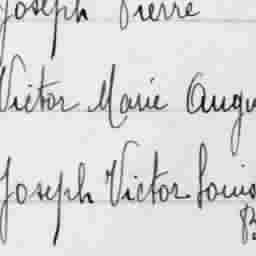 Joseph Pierre
Victor Marie Augu
Joseph Victor Louis